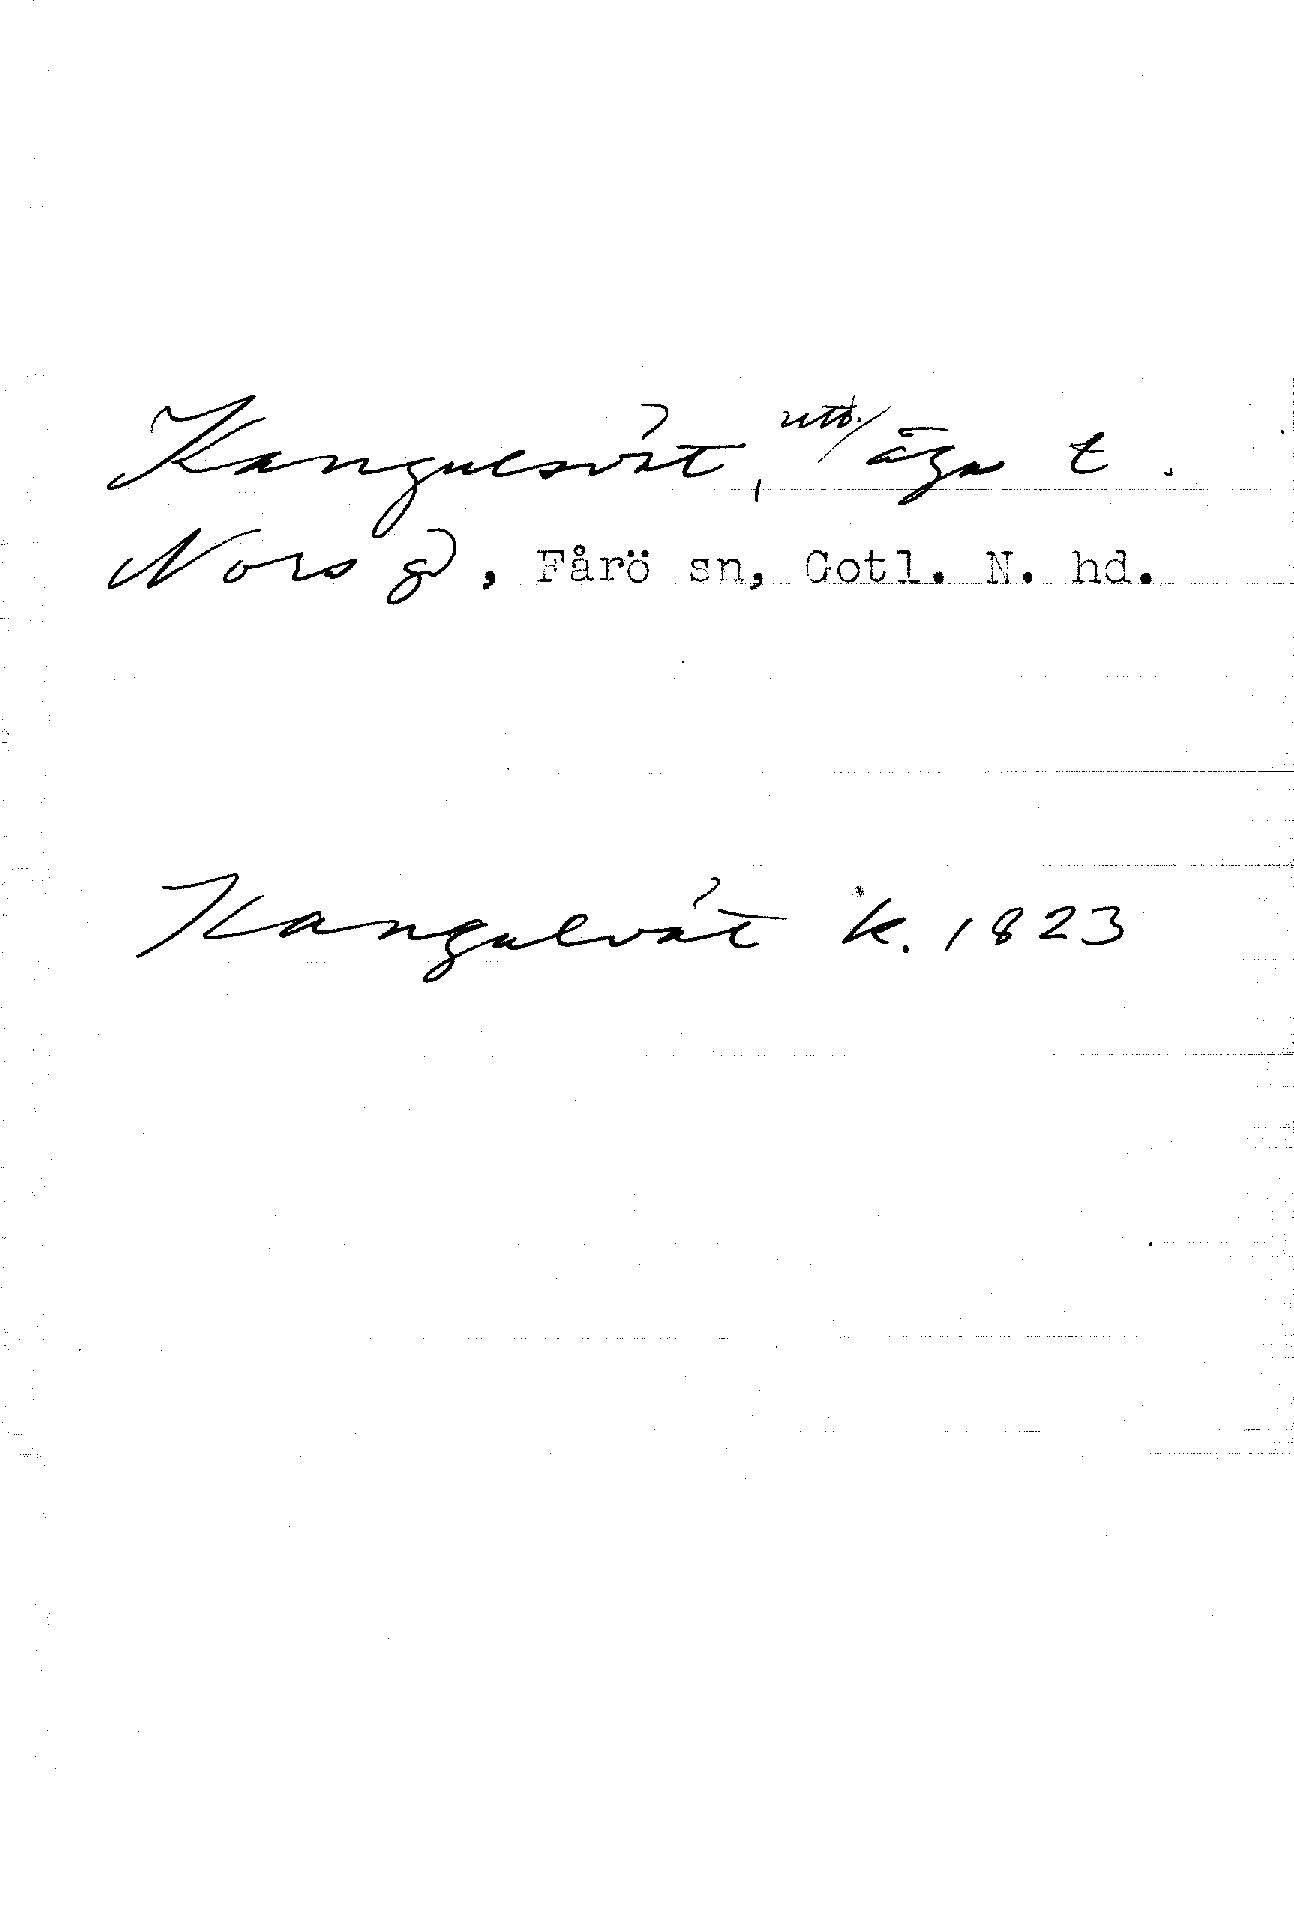 Kangulsvät, utb./äga t.
Nors gd, Fårö sn, Gotl. N. hd.
Kangulvät k. 1823